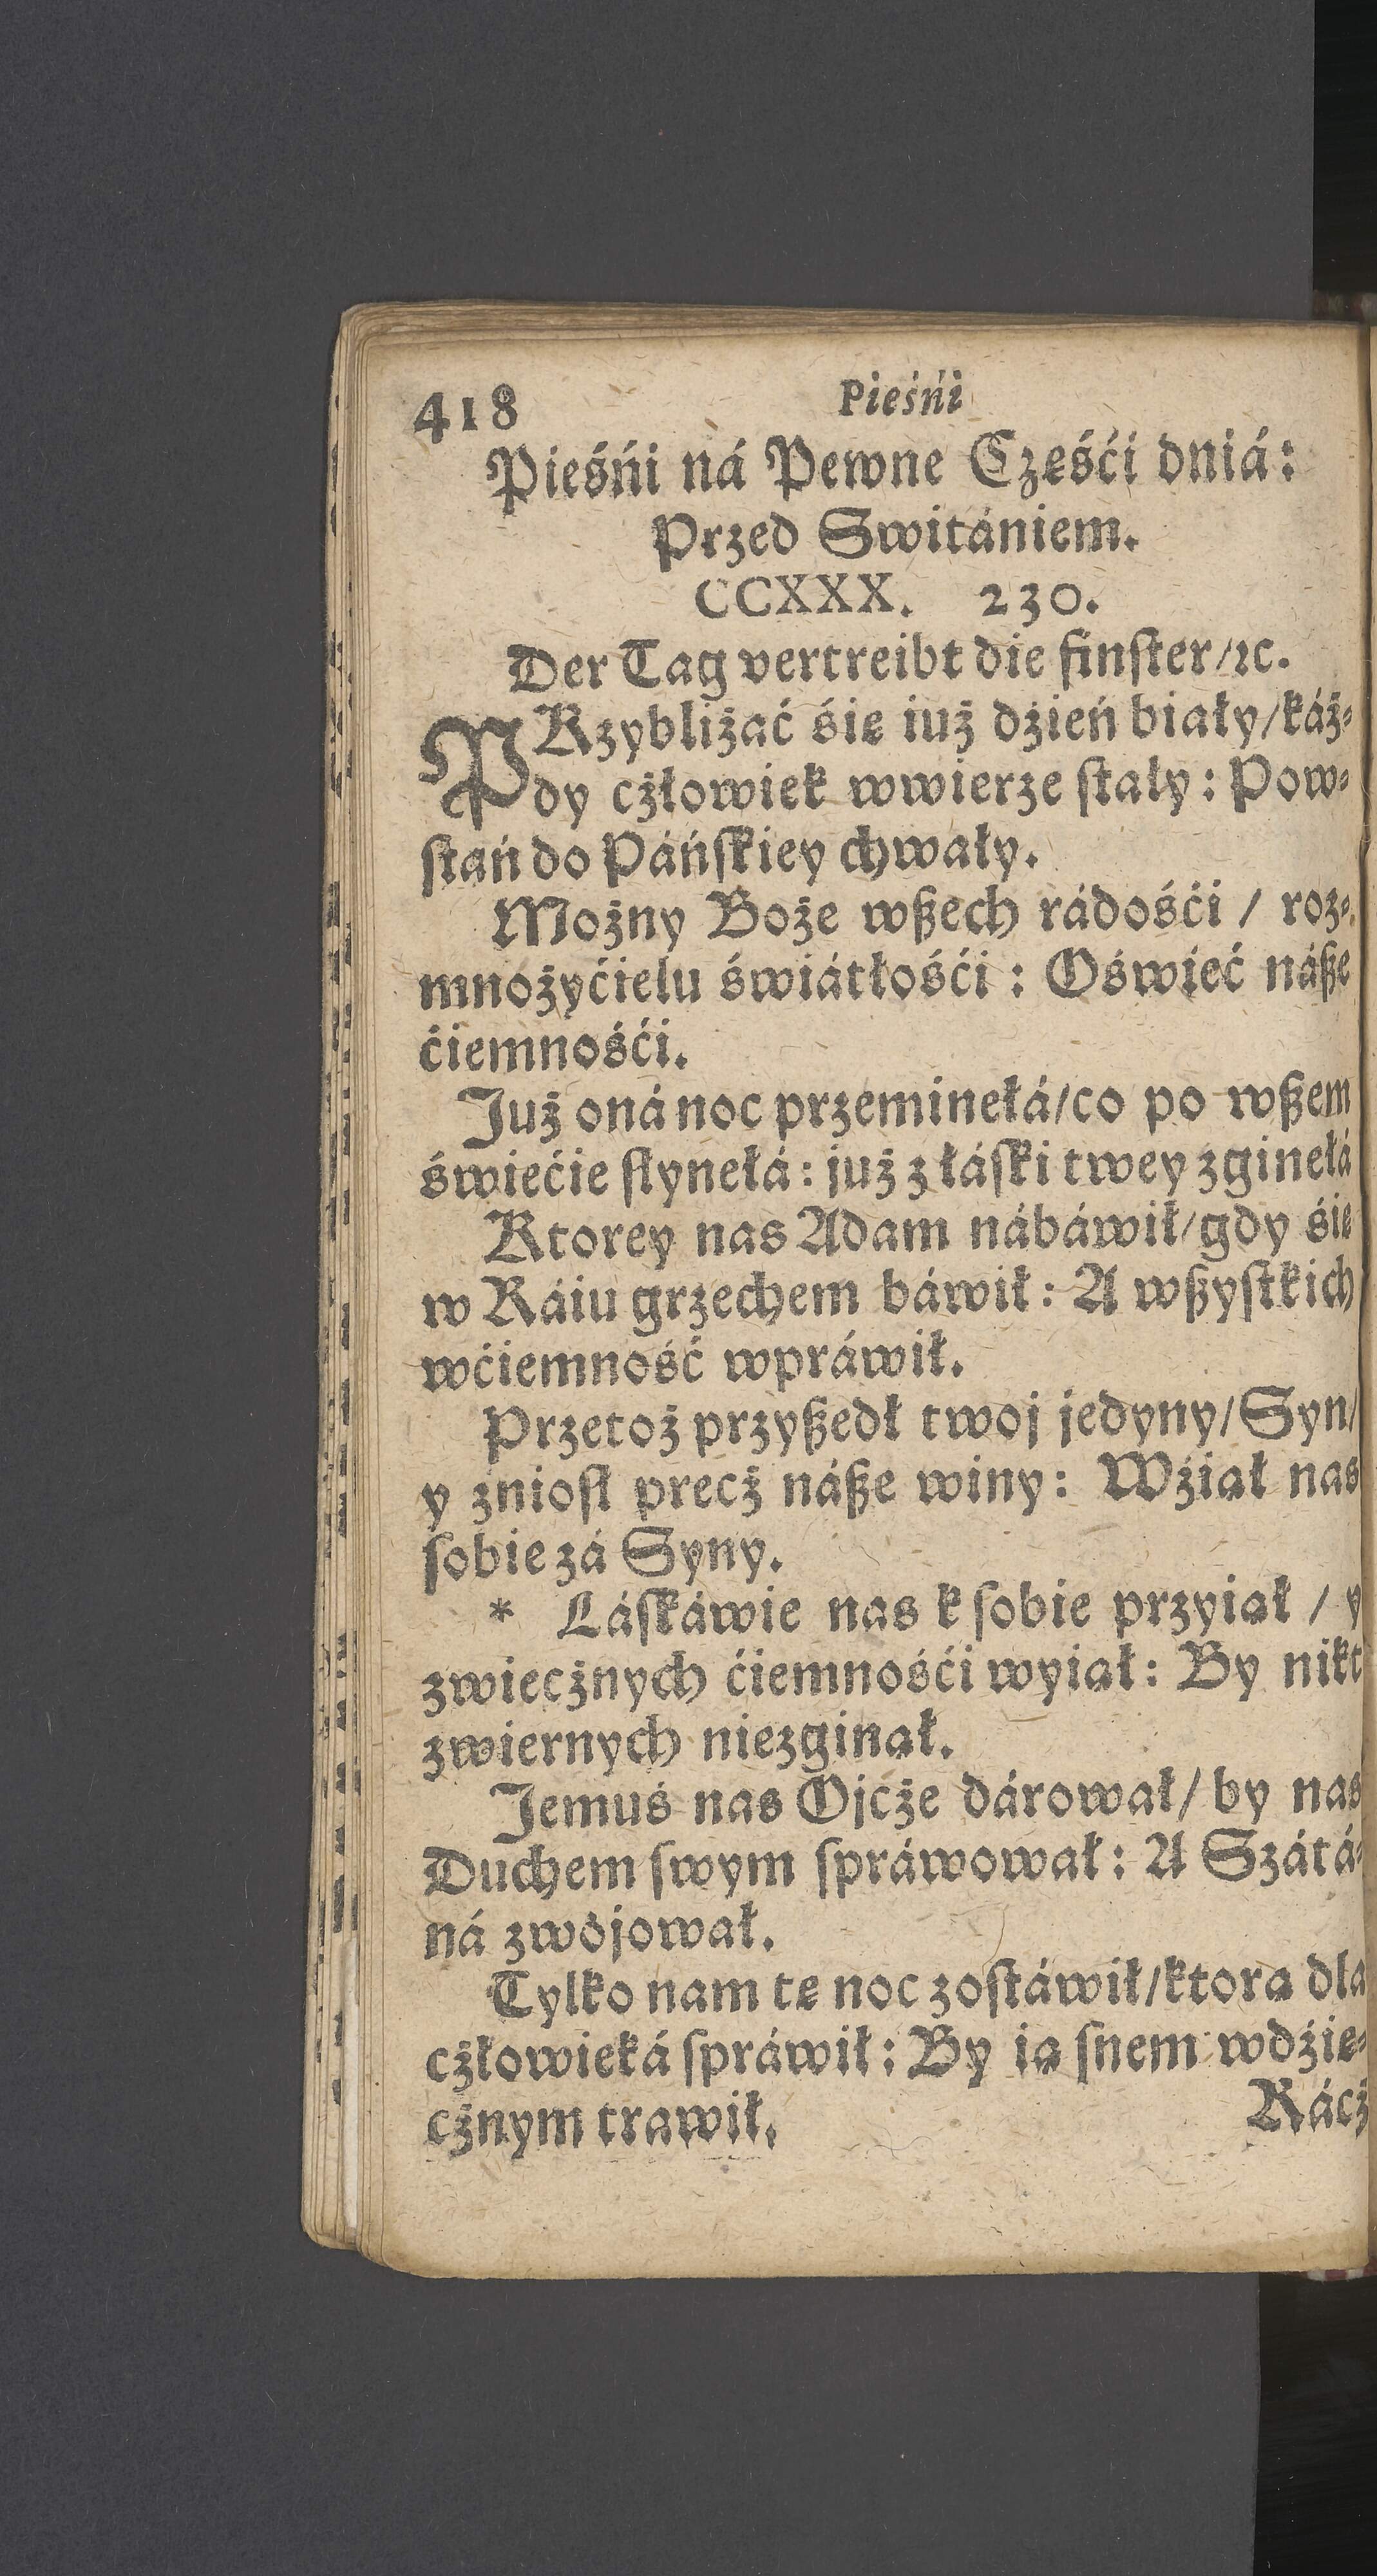 418 Pieśńi
Pieśńi ná Pewne Cześći dniá:
Przed Switániem.
CCXXX. 230.
Der Tag vertreibt die finſter/ꝛc.
PRzybliżać śię iuż dżień biały/káż⸗
dy cżłowiek wwierze ſtały: Pow⸗
ſtań do Páńſkiey chwały.
Możny Boże wßech rádośći / roz⸗
mnożyćielu świátłośći: Oświeć náße
ćiemnośći.
Już oná noc przeminełá/co po wßem
świećie ſłynełá: już z łáſki twey zginełá
Ktorey nas Adam nábáwił/gdy śie
w Ráiu grzechem báwił: A wßyſtkich
wćiemność wpráwił.
Przetoż przyßedł twoj jedyny/Syn/
y znioſł precż náße winy: Wźiął nas
ſobie zá Syny.
* Láſkáwie nas k ſobie przyiął / y
zwiecżnych ćiemnośći wyiął: By nikt
zwiernych niezginął.
Jemuś nas Ojcże dárował/ by nas
Duchem ſwym ſpráwował: A Szátá⸗
ná zwojował.
Tylko nam tę noc zoſtáwił/ktorą dla
cżłowieká ſpráwił: By ią ſnem wdżię⸗
cżnym trawił.
Rácż